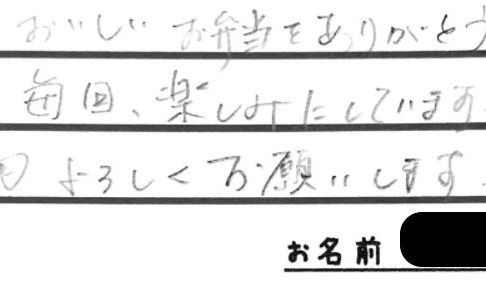 おいしい お弁当をありがとう
毎回、楽しみにしています
よろしくお願いします
お名前